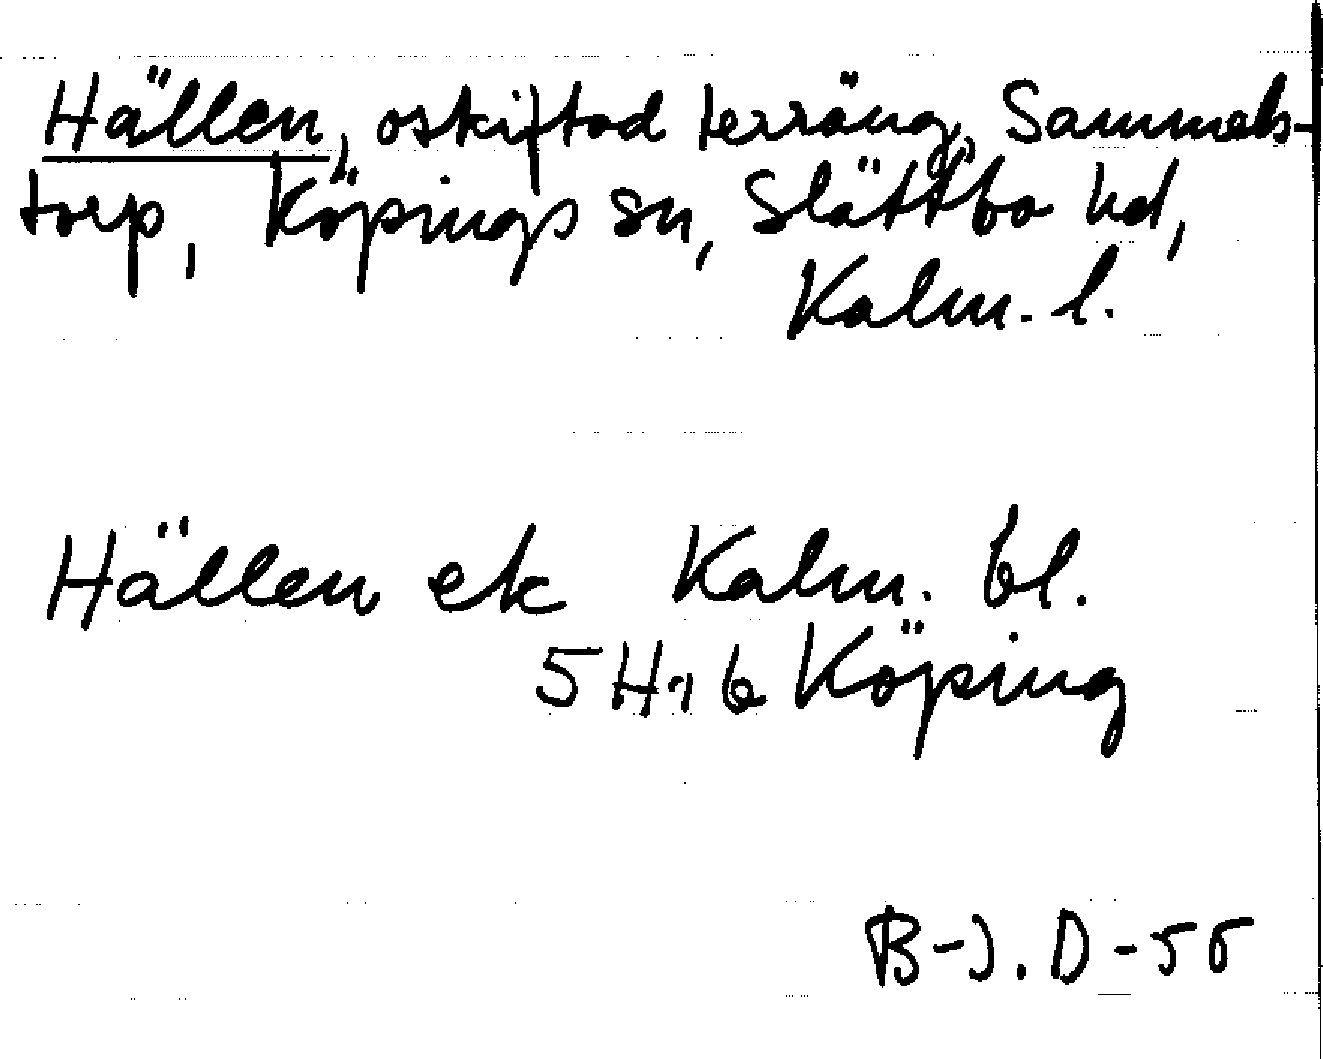 Hällen, oskiftad terräng, Sammels-
torp, Köpings sn, Slättbo hd,
Kalm. l.
Hällen ek Kalm. bl.
5 H 1 b Köping
B-J. D-55